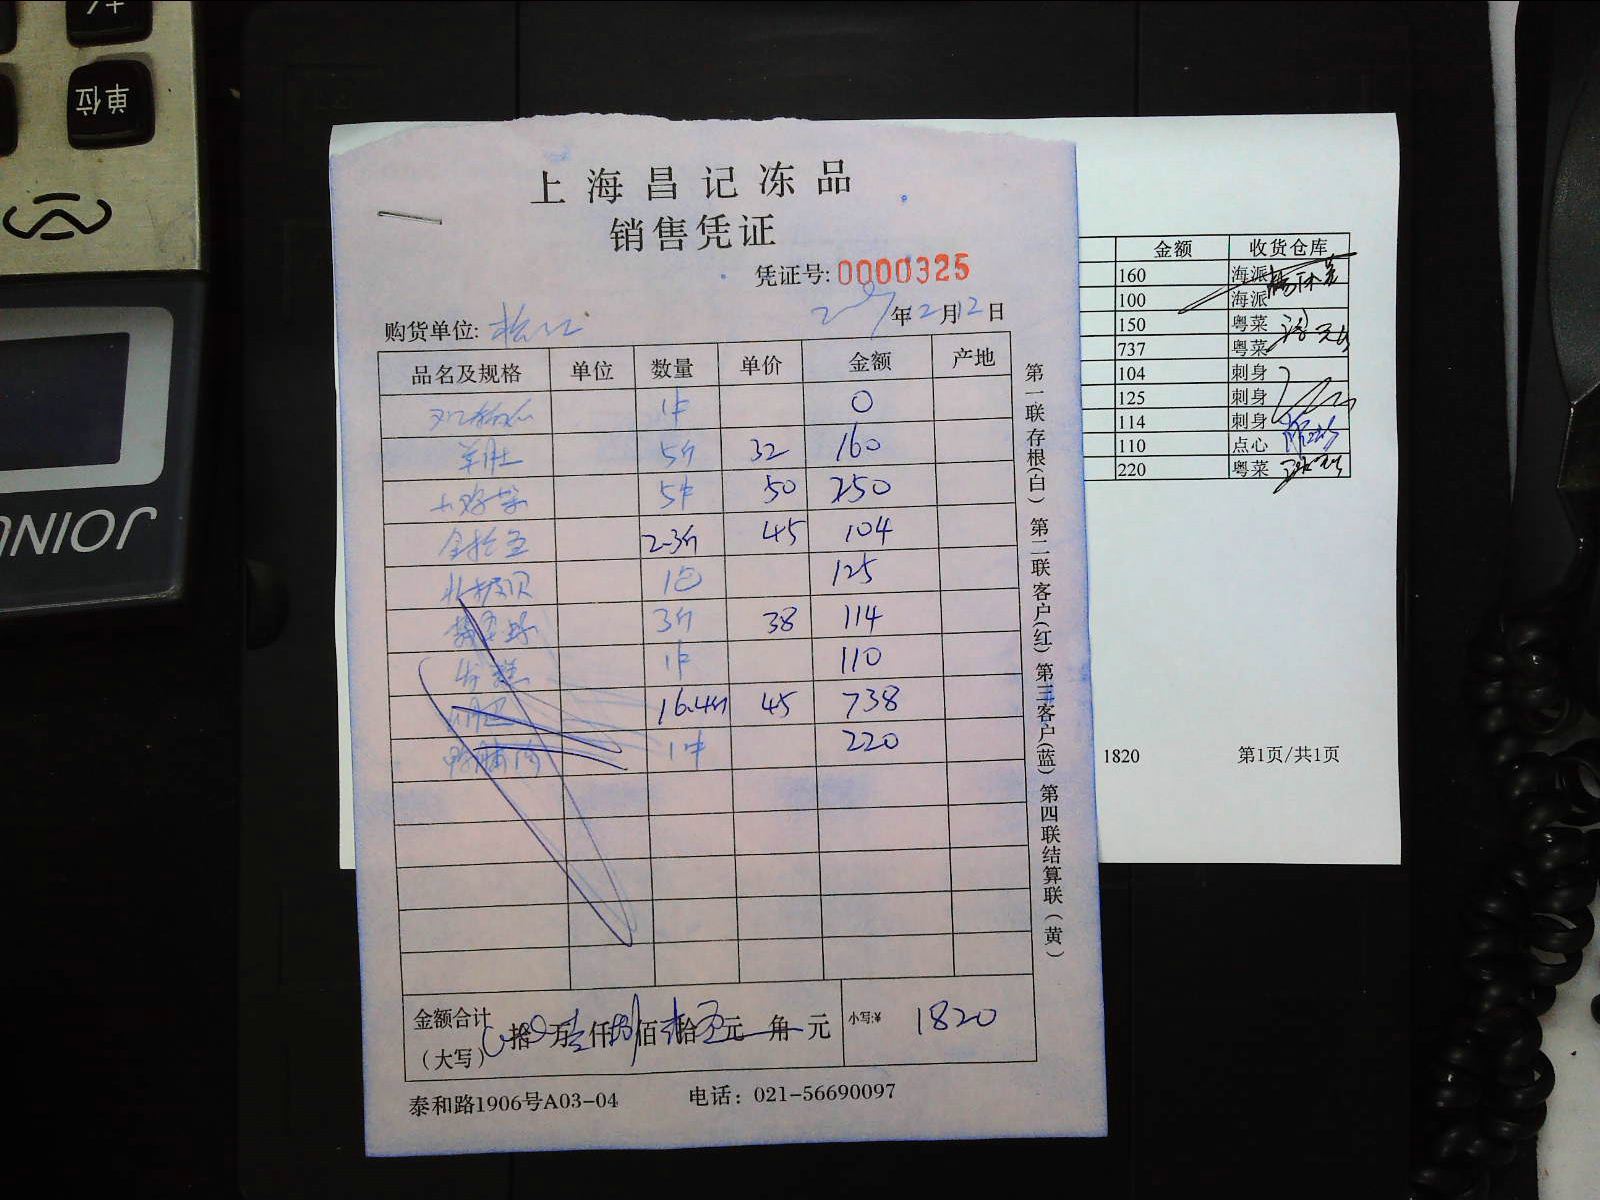 单位
JOINU
上海昌记冻品
销售凭证
凭证号:0000325
购货单位: 年2月12日
品名及规格 单位 数量 单价 金额 产地
1件 0
羊肚 5斤 32 160
5件 50 250
2-3斤 45 104
北极贝 1包 125
3斤 38 114
1件 110
16.4斤 45 738
1件 220
金额合计(大写) 拾 万 仟 佰 拾 元 角 元 小写:¥ 1820
泰和路1906号A03-04 电话: 021-56690097
第一联存根(白) 第二联客户(红) 第三客户(蓝) 第四联结算联(黄)
金额 收货仓库
160 海派
100 海派
150 粤菜
737 粤菜
104 刺身
125 刺身
114 刺身
110 点心
220 粤菜
1820 第1页/共1页